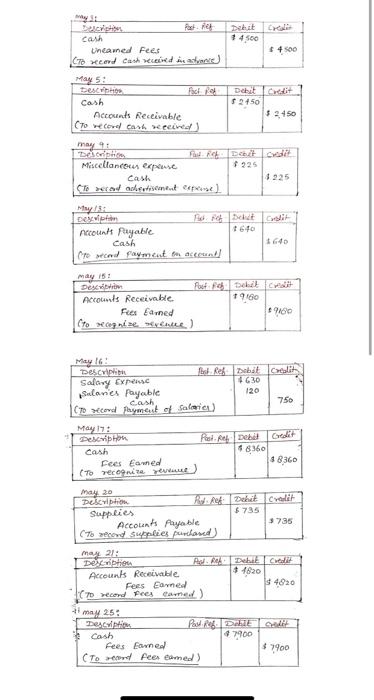 may 3:
Description Post. Ref Debit Credit
Cash $4500
Unearned Fees $4500
(To record cash received in advance)
May 5:
Description Post. Ref Debit Credit
Cash $2450
Accounts Receivable $2,450
(To record cash received)
may 9:
Description Post. Ref. Debit Credit
Miscellaneous expense $225
Cash $225
(To record advertisement expense)
May 13:
Description Post. Ref Debit Credit
Accounts Payable $640
Cash $640
(To record payment on account)
may 15:
Description Post. Ref Debit Credit
Accounts Receivable $9180
Fees Earned $9180
(To recognize revenue)
May 16:
Description Post. Ref. Debit Credit
Salary Expense $630
Salaries Payable 120
Cash 750
(To record Payment of Salaries)
May 17:
Description Post. Ref Debit Credit
Cash $8360
Fees Earned $8360
(To recognize revenue)
may 20
Description Post. Ref Debit Credit
Supplies $735
Accounts Payable $735
(To record supplies purchased)
may 21:
Description Post. Ref. Debit Credit
Accounts Receivable $4820
Fees Earned $4820
(To record Fees earned)
may 25:
Description Post. Ref. Debit Credit
Cash $7900
Fees Earned $7900
(To record fees earned)